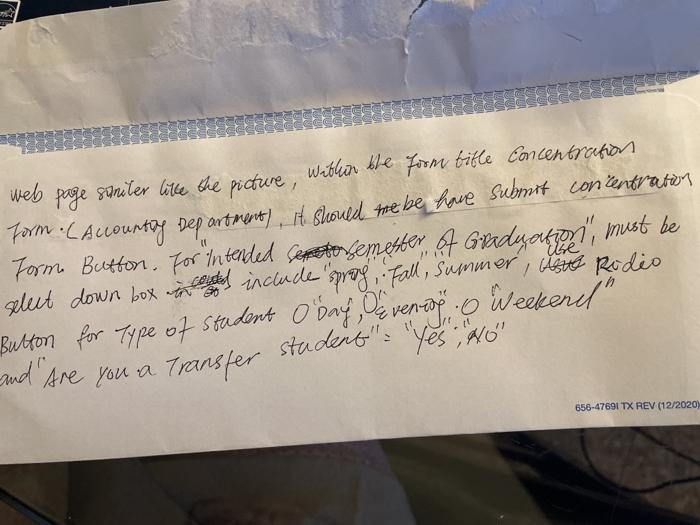 web page similer like the picture, within the Form title Concentration
Form. (Accounting Department), it should be have Submit concentration
Form Button. For "Intended semester of Graduation", must be
select down box include "spring", "Fall", "Summer", Use Rodio
Button for Type of student O "Day", O "Evening". O "Weekend"
and "Are you a Transfer student" = "Yes", "No"
656-4769I TX REV (12/2020)